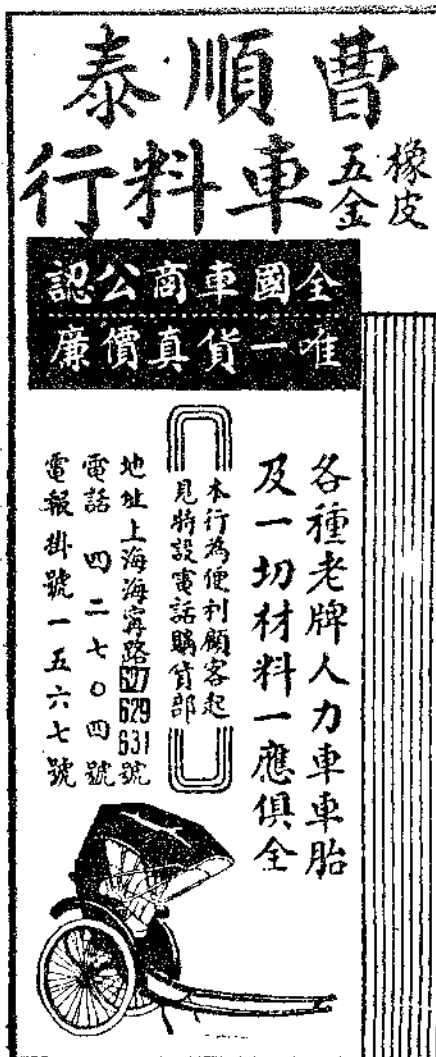 曹順泰
橡皮
五金
車料行
全國車商公認
唯一貨真價廉
各種老牌人力車車胎
及一切材料一應俱全
本行為便利顧客起
見特設電話購貨部
地址上海海寧路627 629 631號
電話四二七〇四號
電報掛號一五六七號